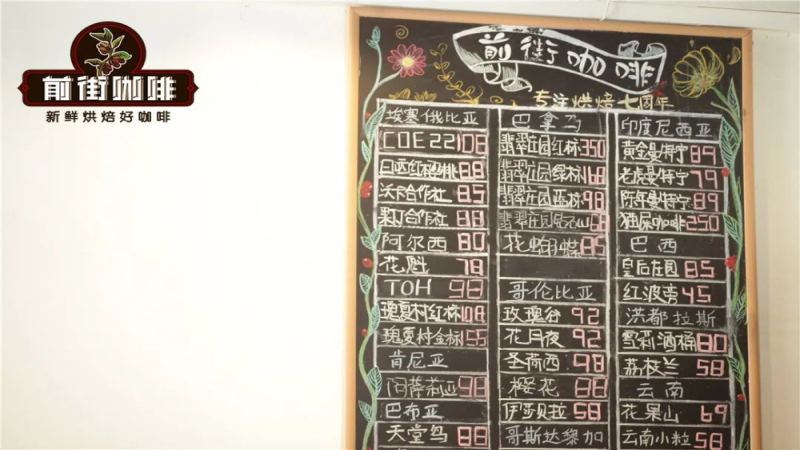 前街咖啡
新鲜烘焙好咖啡
前街咖啡
专注烘焙七周年
埃塞俄比亚
COE22 108
日晒红樱桃 88
沃卡合作社 85
果丁合作社 88
阿尔西 80
花魁 78
TOH 98
瑰夏村红标 108
瑰夏村金标 55
肯尼亚
阿萨莉亚 98
巴布亚
天堂鸟 88
巴拿马
翡翠庄园红标 350
翡翠庄园绿标 168
翡翠庄园蓝标 98
翡翠庄园钻石山 68
花蝴蝶 85
哥伦比亚
玫瑰谷 92
花月夜 92
圣荷西 98
樱花 88
伊莎贝拉 58
哥斯达黎加
印度尼西亚
黄金曼特宁 89
老虎曼特宁 79
陈年曼特宁 89
猫屎咖啡 250
巴西
皇后庄园 85
红波旁 45
洪都拉斯
雪莉酒桶 80
荔枝兰 58
云南
花果山 69
云南小粒 58